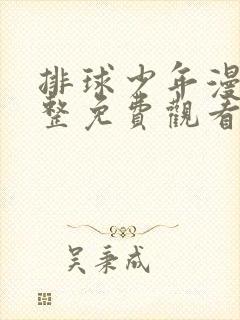 排球少年漫
整免費觀看
吴秉成